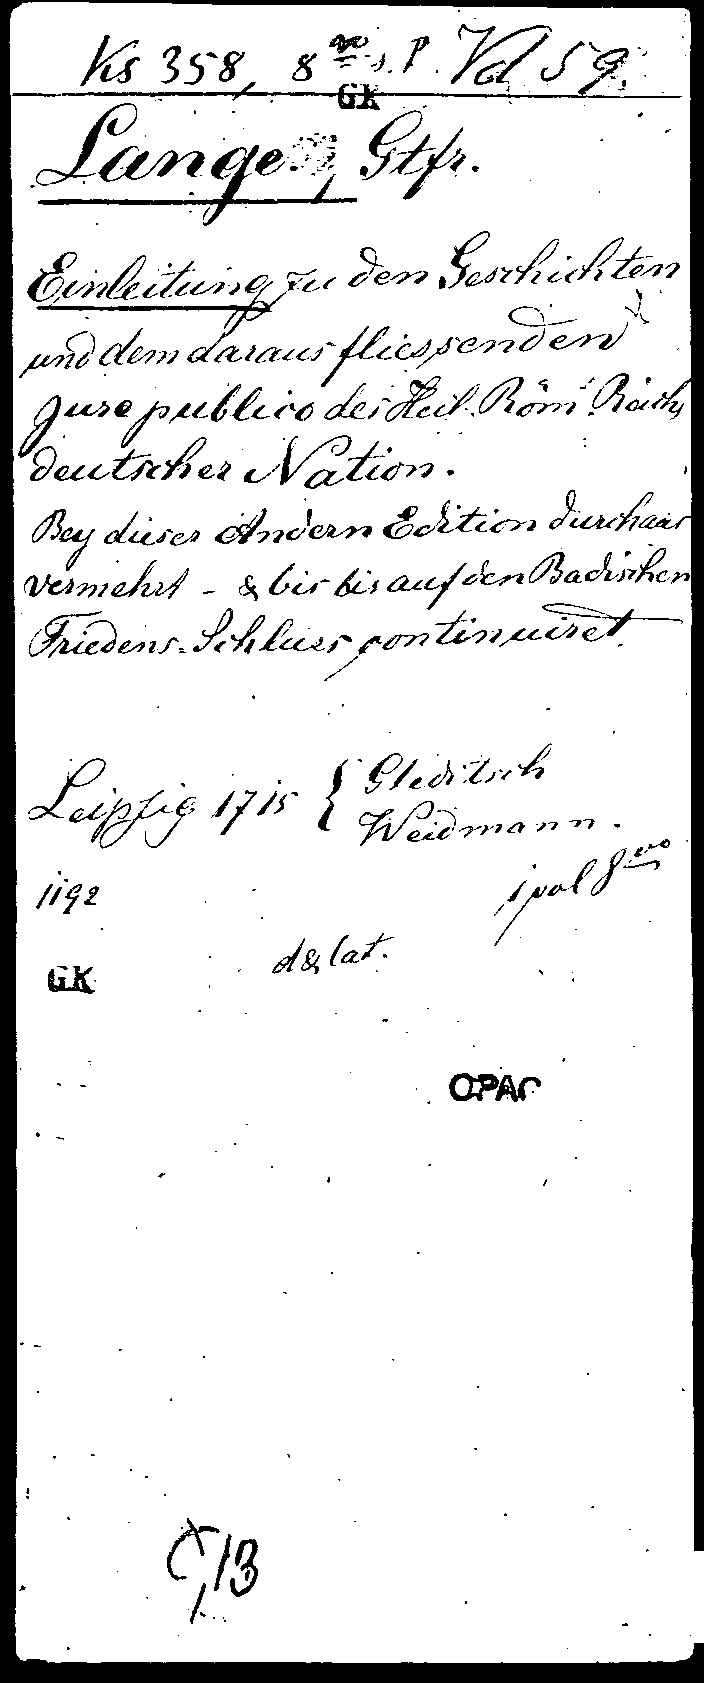 Ks 358, 8vo s. P. Vd 59.
GK
Lange, Gtfr.
Einleitung zu den Geschichten
und dem daraus fliessenden
Jure publico des Heil. Röm. Reichs
deutscher Nation.
Bey dieser Andern Edition durchaus
vermehrt - & bis bis auf den Badischen
Friedens-Schluss continuiret.
Leipzig 1715 { Gleditsch
Weidmann.
1192
1 vol 8vo
d & lat.
GK
OPAC
13